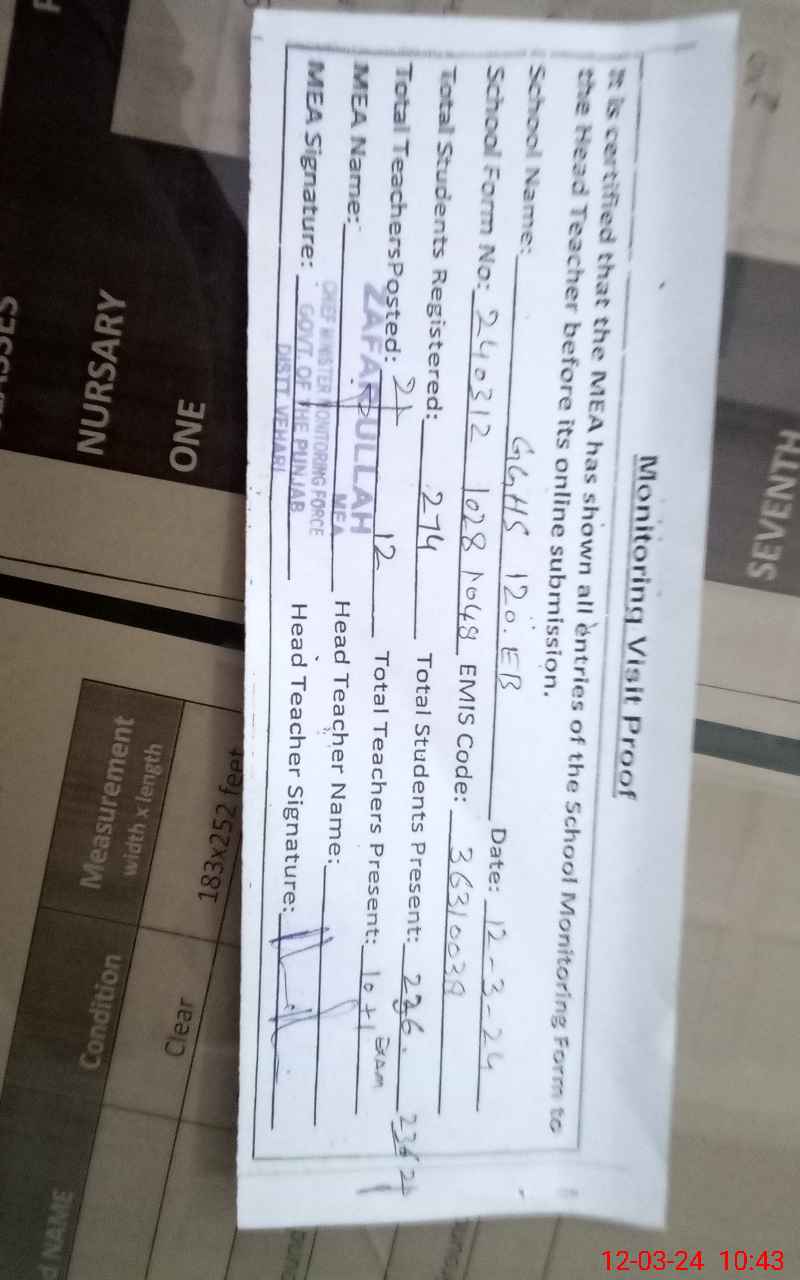 Monitoring Visit Proof
It is certified that the MEA has shown all entries of the School Monitoring Form to
the Head Teacher before its online submission.
School Name: GGHS 120.EB Date: 12-3-24
School Form No: 240312 1028 1048 EMIS Code: 36310039
Total Students Registered: 274 Total Students Present: 226.
Total Teachers Posted: 12 Total Teachers Present: 10+1 EXAM
MEA Name: Head Teacher Name:
MEA Signature: Head Teacher Signature:
ZAFARULLAH
MEA
CHIEF MINISTER MONITORING FORCE
GOVT. OF THE PUNJAB
DISTT. VEHARI
NURSARY
ONE
SEVENTH
Measurement
width x length
Condition
183x252 feet
Clear
NAME
12-03-24 10:43